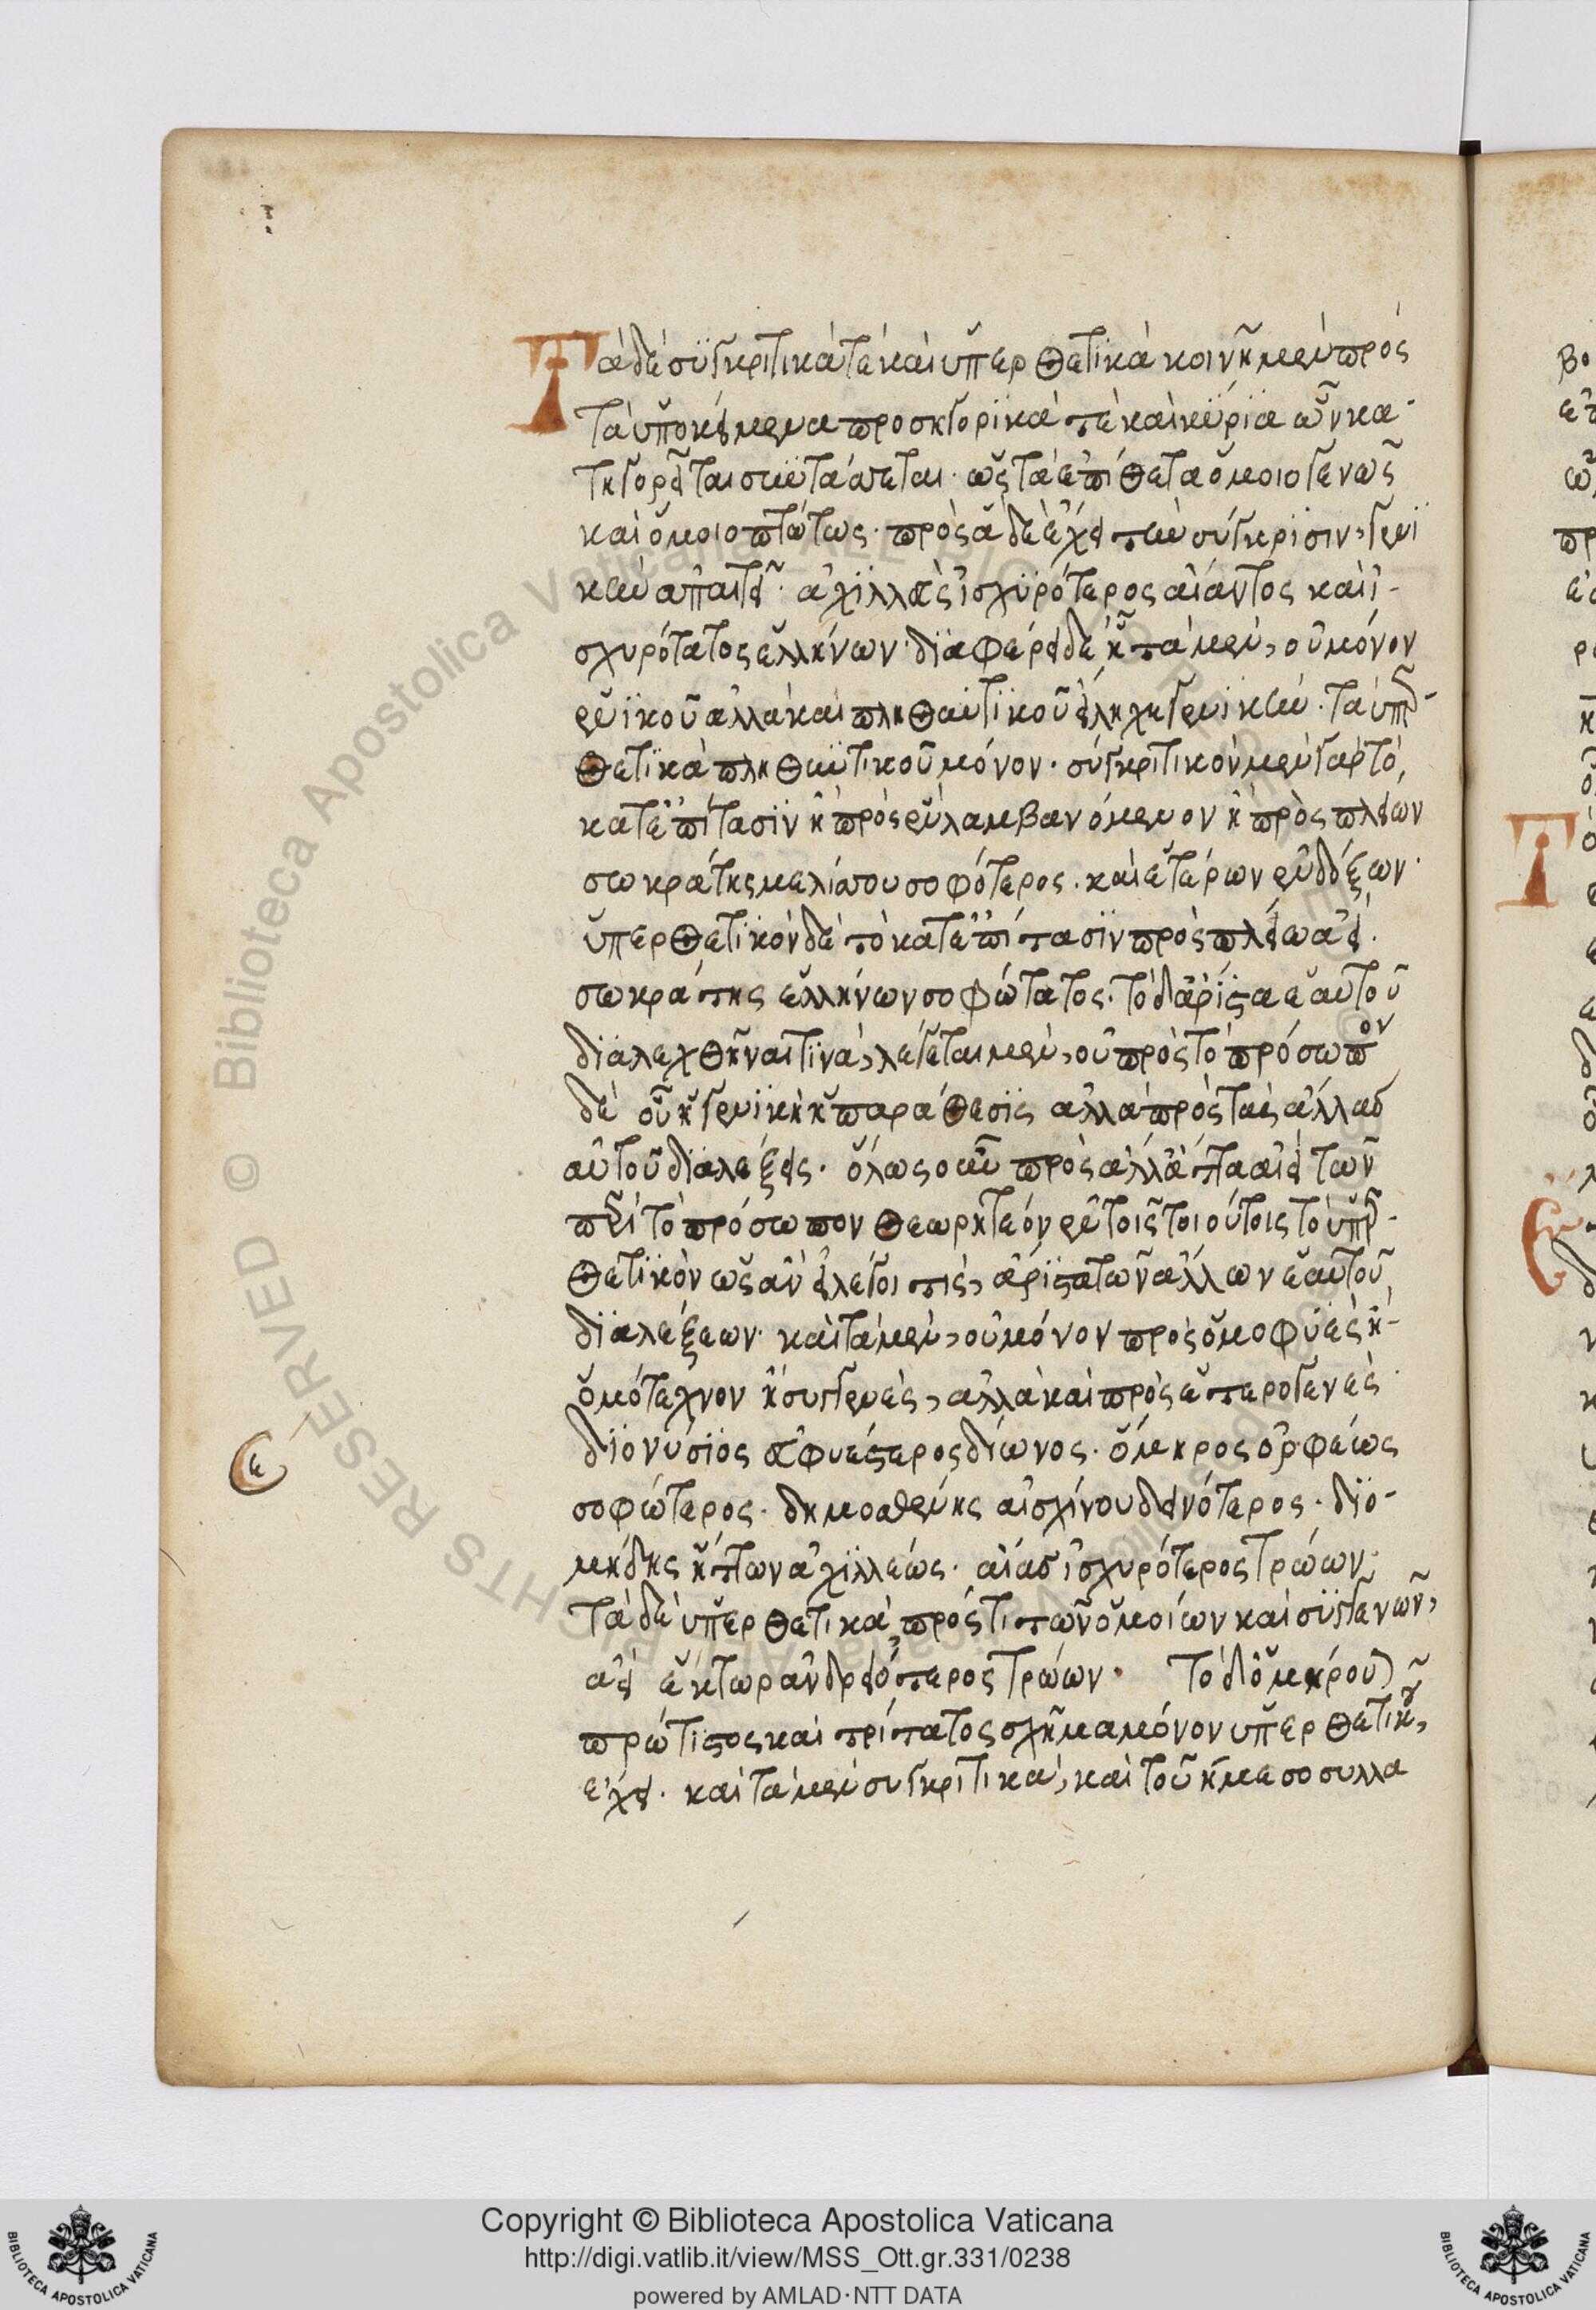 Τὰ δὲ συγκριτικά τε καὶ ὑπερθετικὰ κοινῆ μὲν πρὸς
τὰ ὑποκείμενα προσηγορικά τε καὶ κύρια ὧν κα-
τηγορεῖται συντάττεται. ὡς τὰ ἐπίθετα ὁμοιογενῶς
καὶ ὁμοιοπτώτως. πρὸς ἃ δὲ ἔχει τὴν σύγκρισιν, γενι
κὴν ἀπαιτεῖ. ἀχιλλεὺς ἰσχυρότερος αἴαντος καὶ ἰ-
σχυρότατος ἑλλήνων. διαφέρει δὲ ᾗ τὰ μὲν, οὐ μόνον
ἑνικοῦ ἀλλὰ καὶ πληθυντικοῦ εἴληχε γενικήν. τὰ ὑπερ-
θετικὰ πληθυντικοῦ μόνον. συγκριτικὸν μὲν γὰρ τὸ,
κατ' ἐπίτασιν ἢ πρὸς ἓν λαμβανόμενον ἢ πρὸς πλείων
σωκράτης μελίτου σοφότερος. καὶ ἑτέρων ἐνδόξων.
ὑπερθετικὸν δὲ τὸ κατ' ἐπίτασιν πρὸς πλείω ἀεί.
σωκράτης ἑλλήνων σοφώτατος. τὸ δ' ἄριστα ἑαυτοῦ
διαλεχθῆναι τινὰ, λέγεται μὲν, οὐ πρὸς τὸ πρόσωπον
δὲ οὖν ἡ γενικὴ ἡ παράθεσις ἀλλὰ πρὸς τὰς ἄλλας
αὐτοῦ διαλέξεις. ὅλως οὖν πρὸς ἀλλάττα ἀεὶ τῶν
περὶ τὸ πρόσωπον θεωρητέον ἐν τοῖς τοιούτοις τὸ ὑπερ-
θετικὸν ὡς ἂν εἰ λέγοι τις, ἄριστα τῶν ἄλλων ἑαυτοῦ
διαλέξεων. καὶ τὰ μὲν, οὐ μόνον πρὸς ὁμοφυὲς ἢ
ὁμότεχνον ἢ συγγενὲς, ἀλλὰ καὶ πρὸς ἑτερογενὲς.
διονύσιος εὐφυέστερος δίωνος. ὅμηρος ὀρφέως
σοφώτερος. δημοσθένης αἰσχίνου δεινότερος. διο-
μήδης ἥττων ἀχιλλέως. αἴας ἰσχυρότερος τρώων.
τὰ δὲ ὑπερθετικὰ πρός τι τῶν ὁμοίων καὶ συγγενῶν,
ἀεί ἕκτωρ ἀνδρειότερος τρώων. τὸ δ' ὁμήρου
πρώτιστος καὶ τρίτατος σχῆμα μόνον ὑπερθετικοῦ,
ἔχει. καὶ τὰ μὲν συγκριτικὰ, καὶ τοῦ ἡ μεσοσυλλα
ε
Copyright © Biblioteca Apostolica Vaticana
http://digi.vatlib.it/view/MSS_Ott.gr.331/0238
powered by AMLAD·NTT DATA